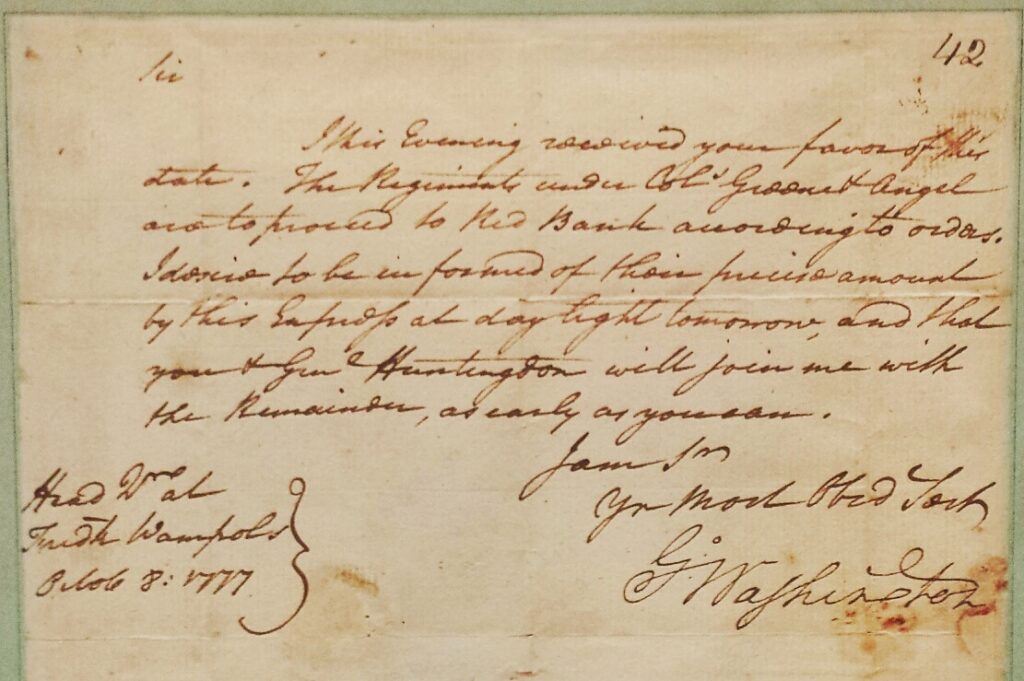 42
Sir
I this Evening received your favor of this
date. The Regiments under Colº. Greene & Angel
are to proceed to Red Bank according to orders.
I desire to be informed of their precise amount
by this Express at day light tomorrow, and that
you & Genl Huntingdon will join me with
the Remainder, as early as you can.
I am Sir
Yr Most Obed Servt
Go: Washington
Head Qrs at
Fredk Wampols
Octob 8: 1777